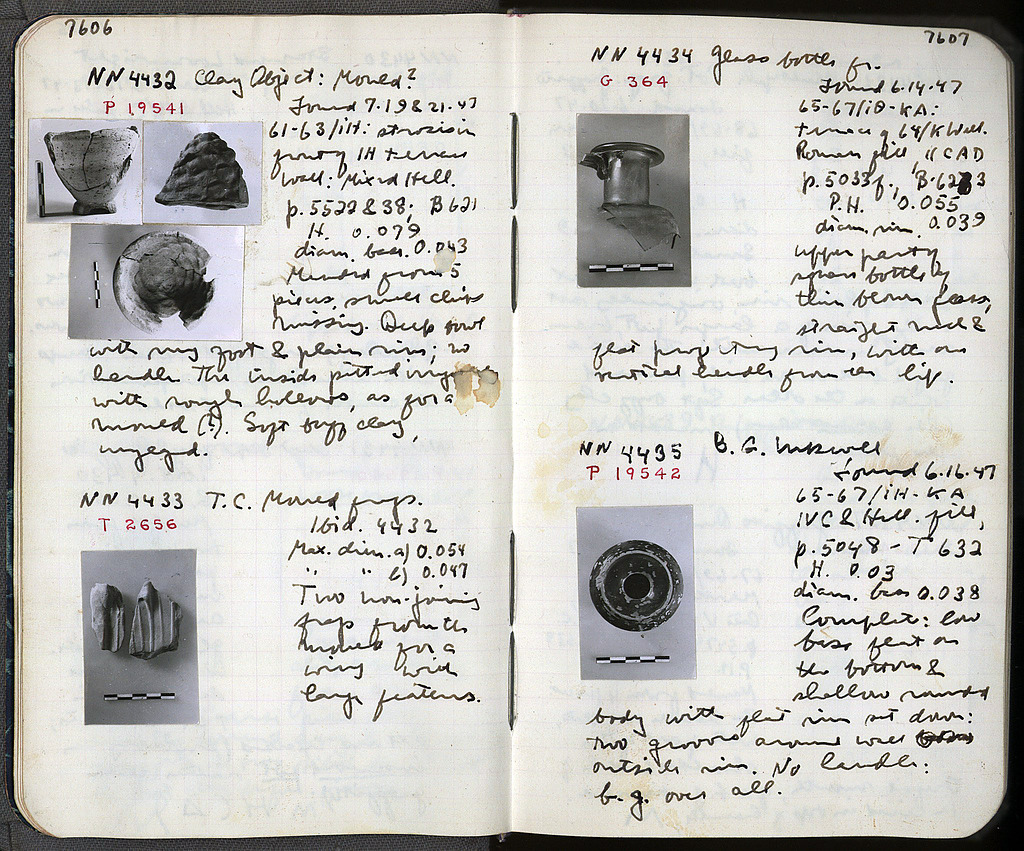 7606
NN 4432 Clay Object: Mould?
P 19541
Found 7.19 & 21.47
61-63/IH: strosis in
front of IH terrace
wall: Mixed Hell.
p. 5522 & 38; B 621
H. 0.079
diam. base 0.043
Mended from 5
pieces, small chips
missing. Deep bowl
with ring foot & plain rim; no
handle. The inside pitted
with rough hollows, as for a
mould (?). Soft buff clay,
unglazed.
NN 4433 T.C. Mould frags.
T 2656
Ibid. 4432
Max. dim. a) 0.054
" " b) 0.047
Two non-joining
frags from the
mould for a
wing with
large feathers.
7607
NN 4434 Glass bottle fr.
G 364
Found 6.14.47
65-67/ΙΘ-ΚΑ:
terrace of 64/K Wall.
Roman fill,
p. 5033 f.,
P.H. 0.055
diam. rim. 0.039
upper part of
square bottle of
thin blown glass,
straight neck &
flat projecting rim, with one
vertical handle from the lip.
NN 4435 B.G. Inkwell
P 19542
Found 6.16.47
65-67/ΙΗ-ΚΑ
IVC & Hell. fill,
p. 5048 - T 632
H. 0.03
diam. base 0.038
Complete: low
base flat on
the bottom &
shallow rounded
body with flat rim set down:
two grooves around well
outside rim. No handle:
b.g. over all.